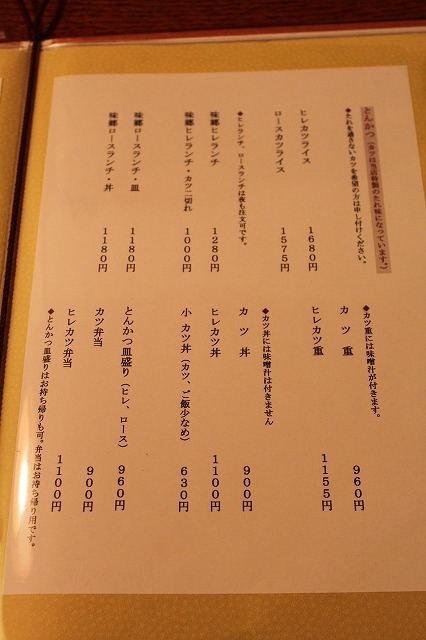 とんかつ(カツは当店特製のたれ味になっています。)
◆たれを通さないカツを希望の方は申し付けください。
ヒレカツライス 1680円
ロースカツライス 1575円
◆ヒレランチ、ロースランチは夜も注文可です。
味郷ヒレランチ 1280円
味郷ヒレランチ・カツ二切れ 1000円
味郷ロースランチ・皿 1180円
味郷ロースランチ・丼 1180円
◆カツ重には味噌汁が付きます。
カツ重 960円
ヒレカツ重 1155円
◆カツ丼には味噌汁は付きません
カツ丼 900円
ヒレカツ丼 1100円
小 カツ丼(カツ、ご飯少なめ) 630円
とんかつ皿盛り(ヒレ、ロース) 960円
カツ弁当 900円
ヒレカツ弁当 1100円
◆とんかつ皿盛りはお持ち帰りも可。弁当はお持ち帰り用です。